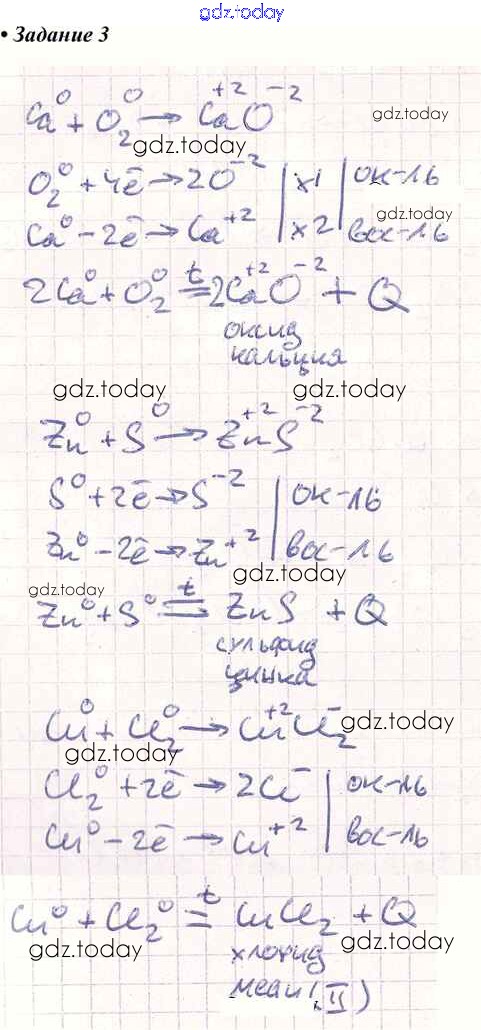 gdz.today
• Задание 3
Ca⁰ + O₂⁰ → Ca⁺²O⁻²
gdz.today
gdz.today
O₂⁰ + 4ē → 2O⁻² | x1 | ок-ль
gdz.today
Ca⁰ - 2ē → Ca⁺² | x2 | вос-ль
2Ca⁰ + O₂⁰ =t= 2Ca⁺²O⁻² + Q
оксид
кальция
gdz.today gdz.today
Zn⁰ + S⁰ → Zn⁺²S⁻²
S⁰ + 2ē → S⁻² | ок-ль
Zn⁰ - 2ē → Zn⁺² | вос-ль
gdz.today
gdz.today
Zn⁰ + S⁰ =t= ZnS + Q
сульфид
цинка
Cu⁰ + Cl₂⁰ → Cu⁺²Cl₂⁻
gdz.today
gdz.today
Cl₂⁰ + 2ē → 2Cl⁻ | ок-ль
Cu⁰ - 2ē → Cu⁺² | вос-ль
Cu⁰ + Cl₂⁰ =t= CuCl₂ + Q
gdz.today gdz.today
хлорид
меди (II)